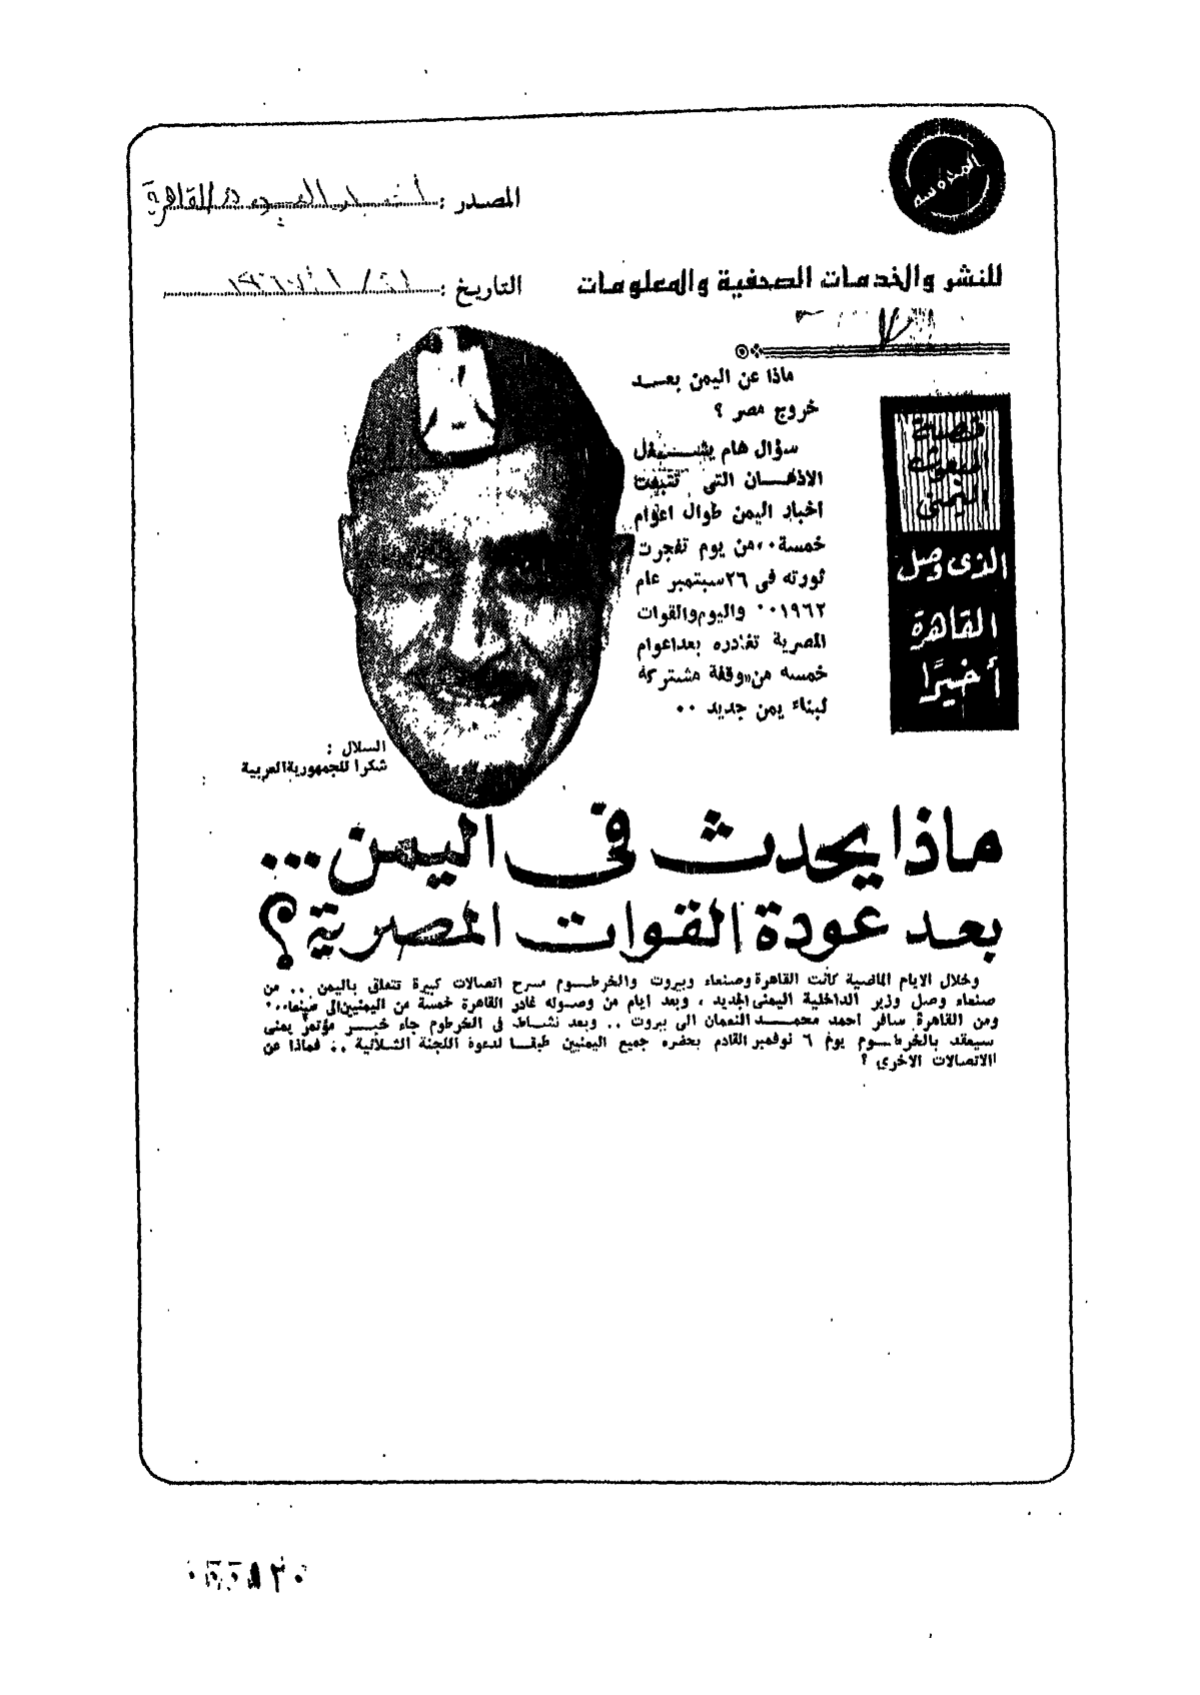 المدوسة
المصدر : أخبار اليوم القاهرة
للنشر والخدمات الصحفية والمعلومات
التاريخ :
ماذا عن اليمن بعد
خروج مصر ؟
سؤال هام يشغل
الاذهان التى تتبعت
اخبار اليمن طوال اعوام
خمسة ٠٠ من يوم تفجرت
ثورته فى ٢٦ سبتمبر عام
١٩٦٢ ٠٠ واليوم والقوات
المصرية تغادره بعد اعوام
خمسه من «وقفة مشتركة
لبناء يمن جديد ٠٠
قصة
المبعوث
اليمنى
الذى وصل
القاهرة
أخيرًا
السلال :
شكرا للجمهورية العربية
ماذا يحدث فى اليمن ...
بعد عودة القوات المصرية ؟
وخلال الايام الماضية كانت القاهرة وصنعاء وبيروت والخرطوم مسرح اتصالات كبيرة تتعلق باليمن .. من
صنعاء وصل وزير الداخلية اليمنى الجديد ، وبعد ايام من وصوله غادر القاهرة خمسة من اليمنيين الى صنعاء ..
ومن القاهرة سافر احمد محمد النعمان الى بيروت .. وبعد نشاط فى الخرطوم جاء خبر مؤتمر يمنى
سيعقد بالخرطوم يوم ٦ نوفمبر القادم يحضره جميع اليمنيين طبقا لدعوة اللجنة الثلاثية .. فماذا عن
الاتصالات الاخرى ؟